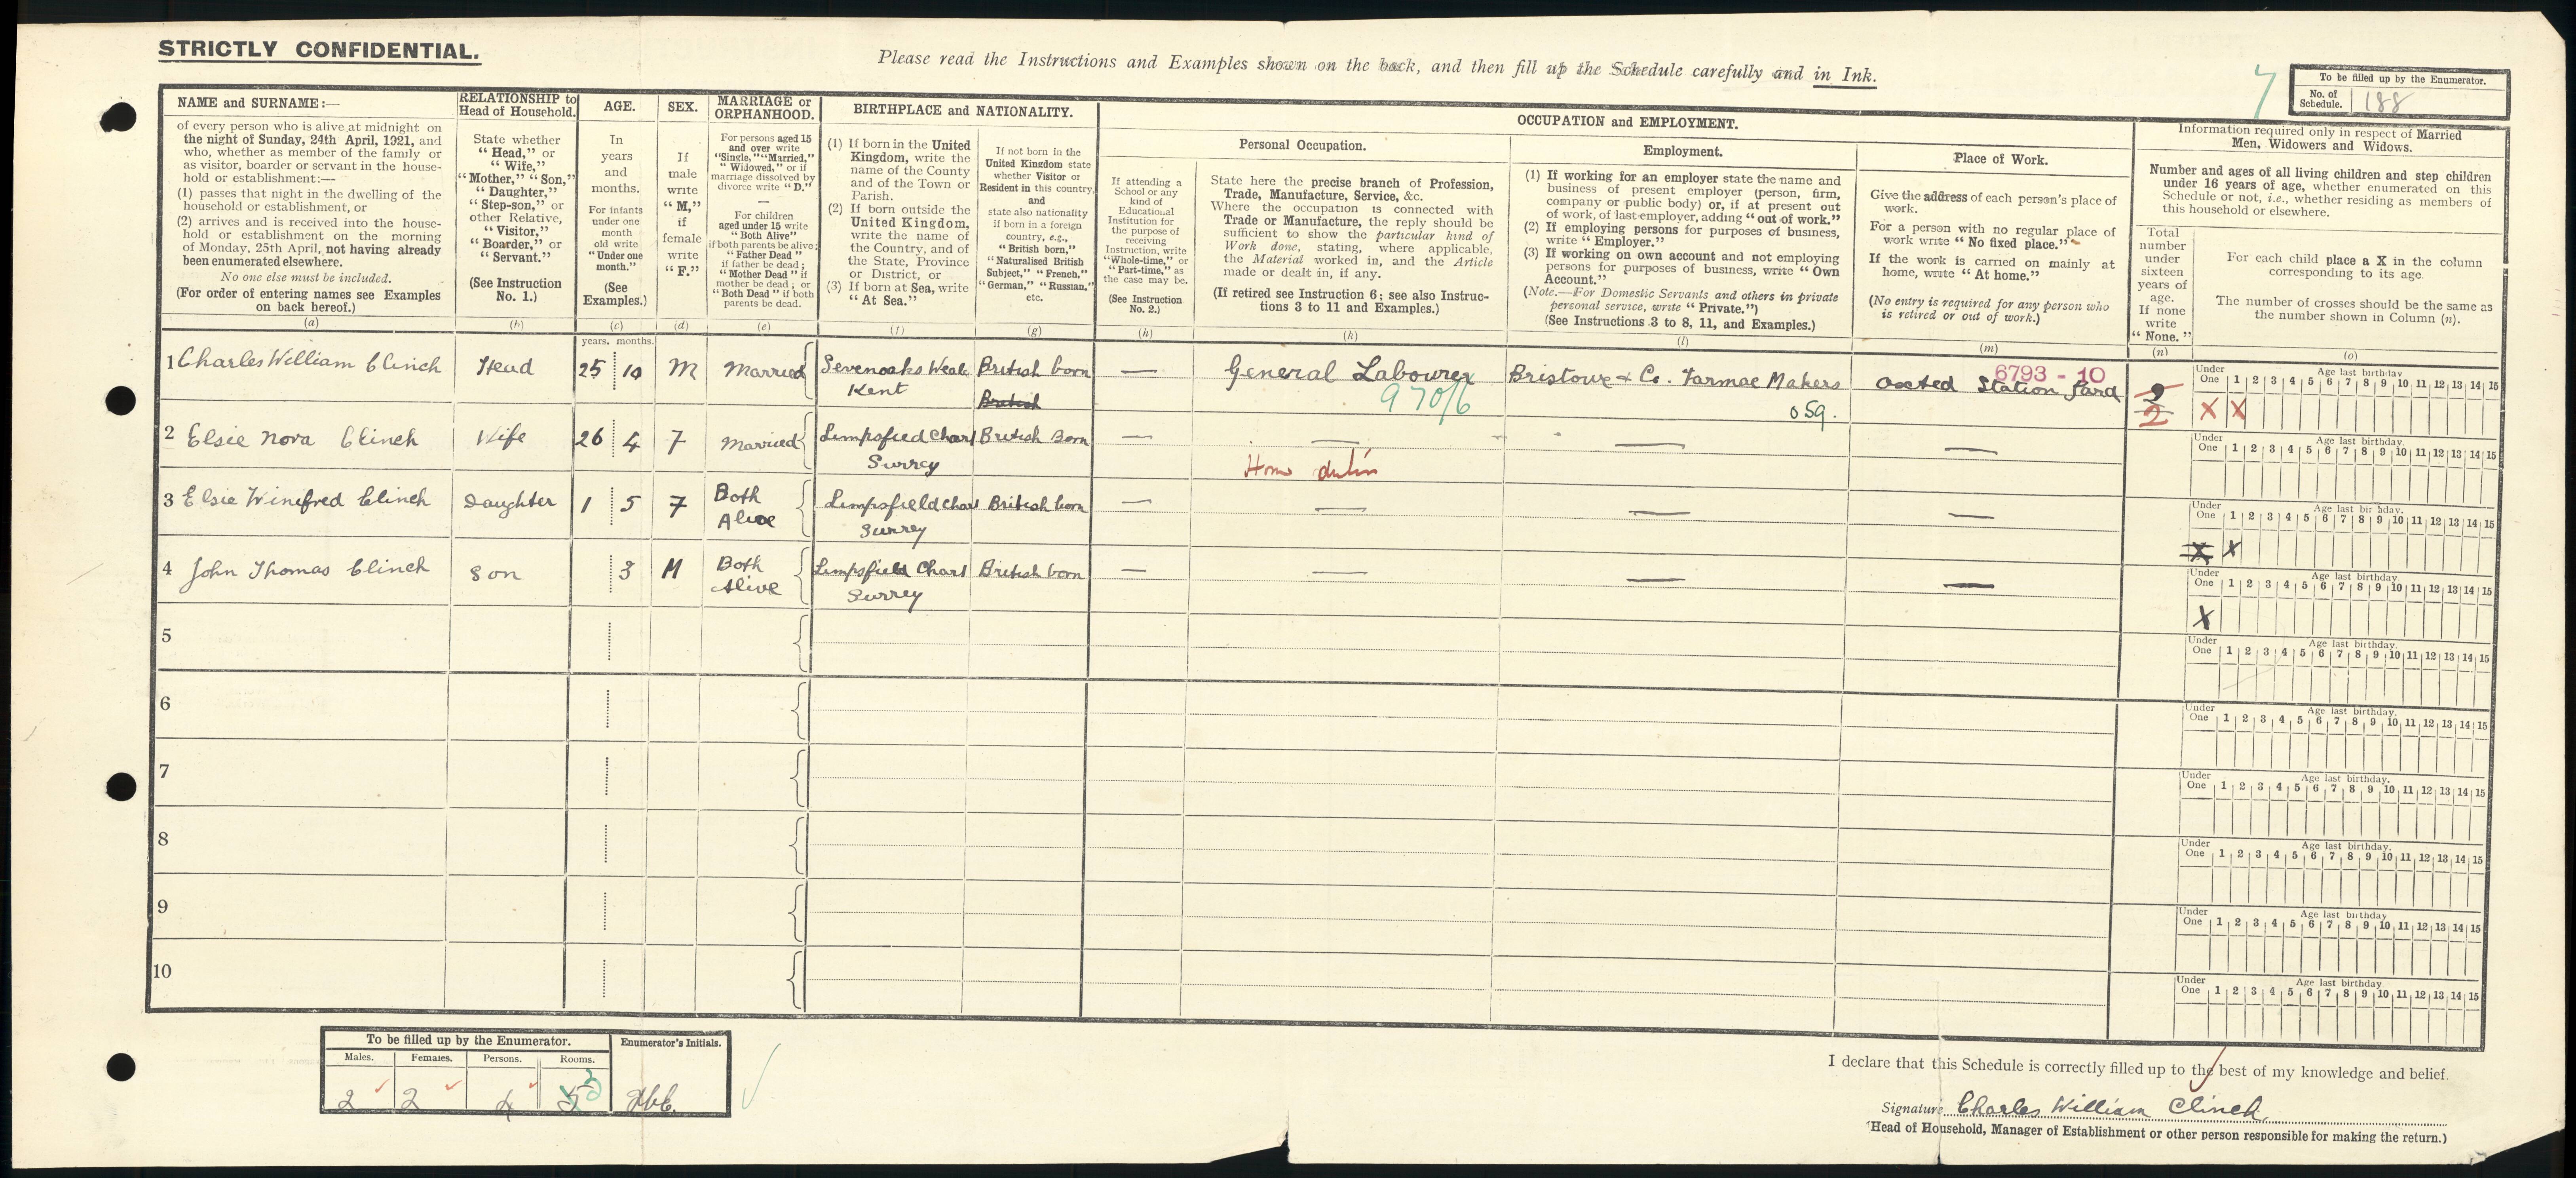 STRICTLY CONFIDENTIAL.
Please read the Instructions and Examples shown on the back, and then fill up the Schedule carefully and in Ink.
To be filled up by the Enumerator.
No. of Schedule. 188
7
NAME and SURNAME:—
of every person who is alive at midnight on
the night of Sunday, 24th April, 1921, and
who, whether as member of the family or
as visitor, boarder or servant in the house-
hold or establishment:—
(1) passes that night in the dwelling of the
household or establishment, or
(2) arrives and is received into the house-
hold or establishment on the morning
of Monday, 25th April, not having already
been enumerated elsewhere.
No one else must be included.
(For order of entering names see Examples
on back hereof.)
(a)
RELATIONSHIP to
Head of Household.
State whether
"Head," or
"Wife,"
"Mother," "Son,"
"Daughter,"
"Step-son," or
other Relative,
"Visitor,"
"Boarder," or
"Servant."
(See Instruction
No. 1.)
(b)
AGE.
In
years
and
months.
For infants
under one
month
old write
"Under one
month."
(See
Examples.)
(c)
SEX.
If
male
write
"M,"
if
female
write
"F."
(d)
MARRIAGE or
ORPHANHOOD.
For persons aged 15
and over write
"Single," "Married,"
"Widowed," or if
marriage dissolved by
divorce write "D."
—
For children
aged under 15 write
"Both Alive"
if both parents be alive;
"Father Dead"
if father be dead;
"Mother Dead" if
mother be dead; or
"Both Dead" if both
parents be dead.
(e)
BIRTHPLACE and NATIONALITY.
(1) If born in the United
Kingdom, write the
name of the County
and of the Town or
Parish.
(2) If born outside the
United Kingdom,
write the name of
the Country, and of
the State, Province
or District, or
(3) If born at Sea, write
"At Sea."
(f)
If not born in the
United Kingdom state
whether Visitor or
Resident in this country,
and
state also nationality
if born in a foreign
country, e.g.,
"British born,"
"Naturalised British
Subject," "French,"
"German," "Russian,"
etc.
(g)
OCCUPATION and EMPLOYMENT.
Personal Occupation.
If attending a
School or any
kind of
Educational
Institution for
the purpose of
receiving
Instruction, write
"Whole-time," or
"Part-time," as
the case may be.
(See Instruction
No. 2.)
(h)
State here the precise branch of Profession,
Trade, Manufacture, Service, &c.
Where the occupation is connected with
Trade or Manufacture, the reply should be
sufficient to show the particular kind of
Work done, stating, where applicable,
the Material worked in, and the Article
made or dealt in, if any.
(If retired see Instruction 6; see also Instruc-
tions 3 to 11 and Examples.)
(k)
Employment.
(1) If working for an employer state the name and
business of present employer (person, firm,
company or public body) or, if at present out
of work, of last employer, adding "out of work."
(2) If employing persons for purposes of business,
write "Employer."
(3) If working on own account and not employing
persons for purposes of business, write "Own
Account."
(Note.—For Domestic Servants and others in private
personal service, write "Private.")
(See Instructions 3 to 8, 11, and Examples.)
(l)
Place of Work.
Give the address of each person's place of
work.
For a person with no regular place of
work write "No fixed place."
If the work is carried on mainly at
home, write "At home."
(No entry is required for any person who
is retired or out of work.)
(m)
Information required only in respect of Married
Men, Widowers and Widows.
Number and ages of all living children and step children
under 16 years of age, whether enumerated on this
Schedule or not, i.e., whether residing as members of
this household or elsewhere.
Total
number
under
sixteen
years of
age.
If none
write
"None."
(n)
For each child place a X in the column
corresponding to its age.
The number of crosses should be the same as
the number shown in Column (n).
(o)
years. months.
1 Charles William Clinch Head 25 10 M Married Sevenoaks Weald British born — General Labourer Bristowe & Co. Tarmac Makers Oxted Station Yard 2
Kent British 970/6 059. 6793 - 10 2
Under One Age last birthday 1 2 3 4 5 6 7 8 9 10 11 12 13 14 15
X X
2 Elsie Nora Clinch Wife 26 4 F Married Limpsfield Chart British Born — — — —
Surrey Home duties
Under One Age last birthday. 1 2 3 4 5 6 7 8 9 10 11 12 13 14 15
3 Elsie Winifred Clinch Daughter 1 5 F Both Alive Limpsfield Chart British born — — — —
Surrey
Under One Age last birthday. 1 2 3 4 5 6 7 8 9 10 11 12 13 14 15
X X
4 John Thomas Clinch Son 3 M Both Alive Limpsfield Chart British born — — — —
Surrey
Under One Age last birthday. 1 2 3 4 5 6 7 8 9 10 11 12 13 14 15
X
5
Under One Age last birthday. 1 2 3 4 5 6 7 8 9 10 11 12 13 14 15
6
Under One Age last birthday. 1 2 3 4 5 6 7 8 9 10 11 12 13 14 15
7
Under One Age last birthday. 1 2 3 4 5 6 7 8 9 10 11 12 13 14 15
8
Under One Age last birthday. 1 2 3 4 5 6 7 8 9 10 11 12 13 14 15
9
Under One Age last birthday 1 2 3 4 5 6 7 8 9 10 11 12 13 14 15
10
Under One Age last birthday 1 2 3 4 5 6 7 8 9 10 11 12 13 14 15
To be filled up by the Enumerator. Enumerator's Initials.
Males. Females. Persons. Rooms.
2 2 4 5 3
I declare that this Schedule is correctly filled up to the best of my knowledge and belief.
Signature Charles William Clinch
(Head of Household, Manager of Establishment or other person responsible for making the return.)